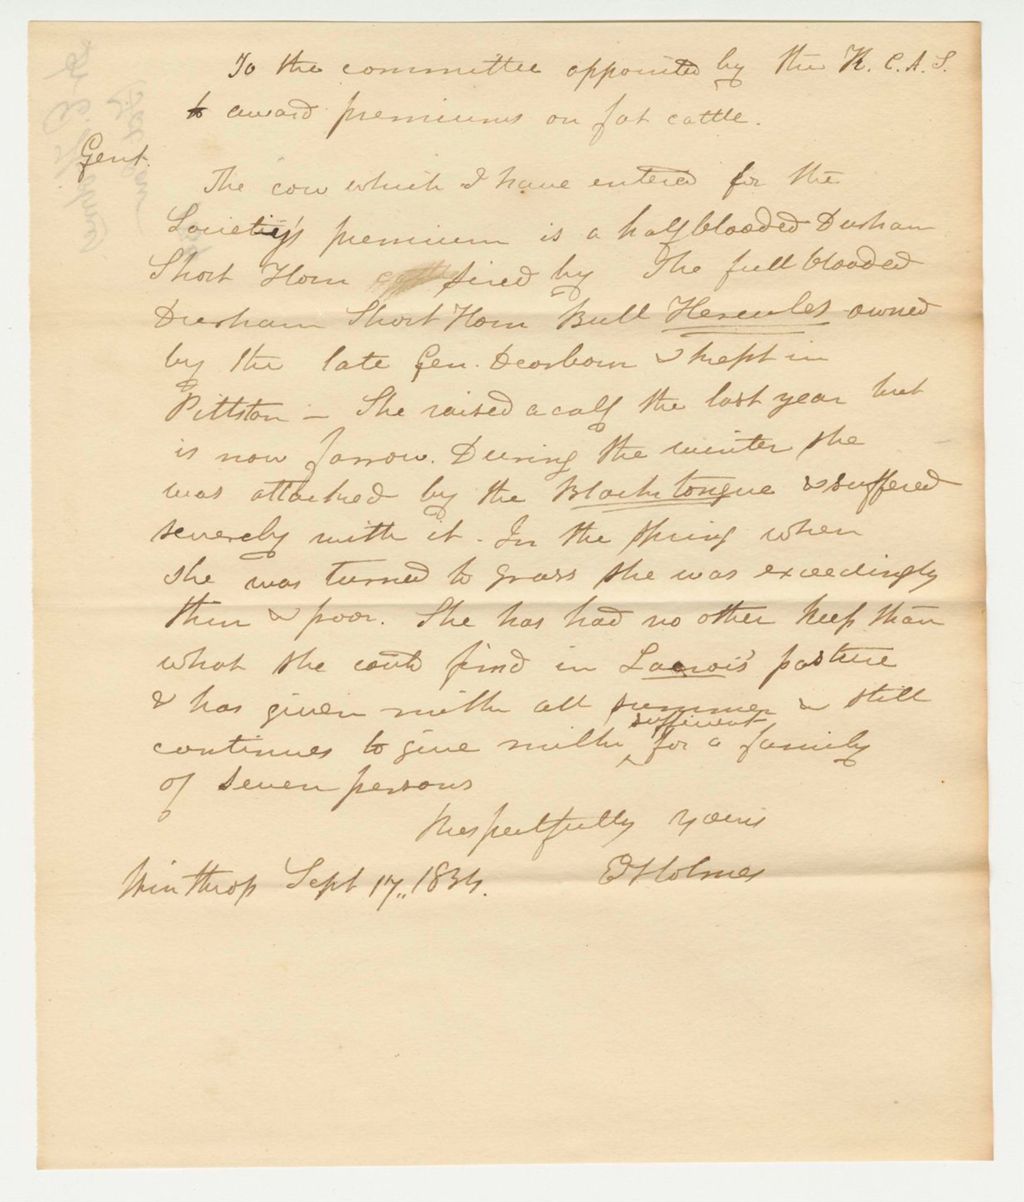 To the committee appointed by the K. C. A. S.
to award premiums on fat cattle.
Gent.
The cow which I have entered for the
Societie's premium is a half blooded Durham
Short Horn sired by The full blooded
Durham Short Horn Bull Hercules owned
by the late Gen. Dearborn & kept in
Pittston – She raised a calf the last year but
is now farrow. During the winter she
was attacked by the Black tongue & suffered
severely with it. In the spring when
she was turned to grass she was exceedingly
thin & poor. She has had no other keep than
what she could find in pasture
& has given milk all summer & still
continues to give milk sufficient for a family
of seven persons
Respectfully yours
E Holmes
Winthrop Sept 17,, 1834.